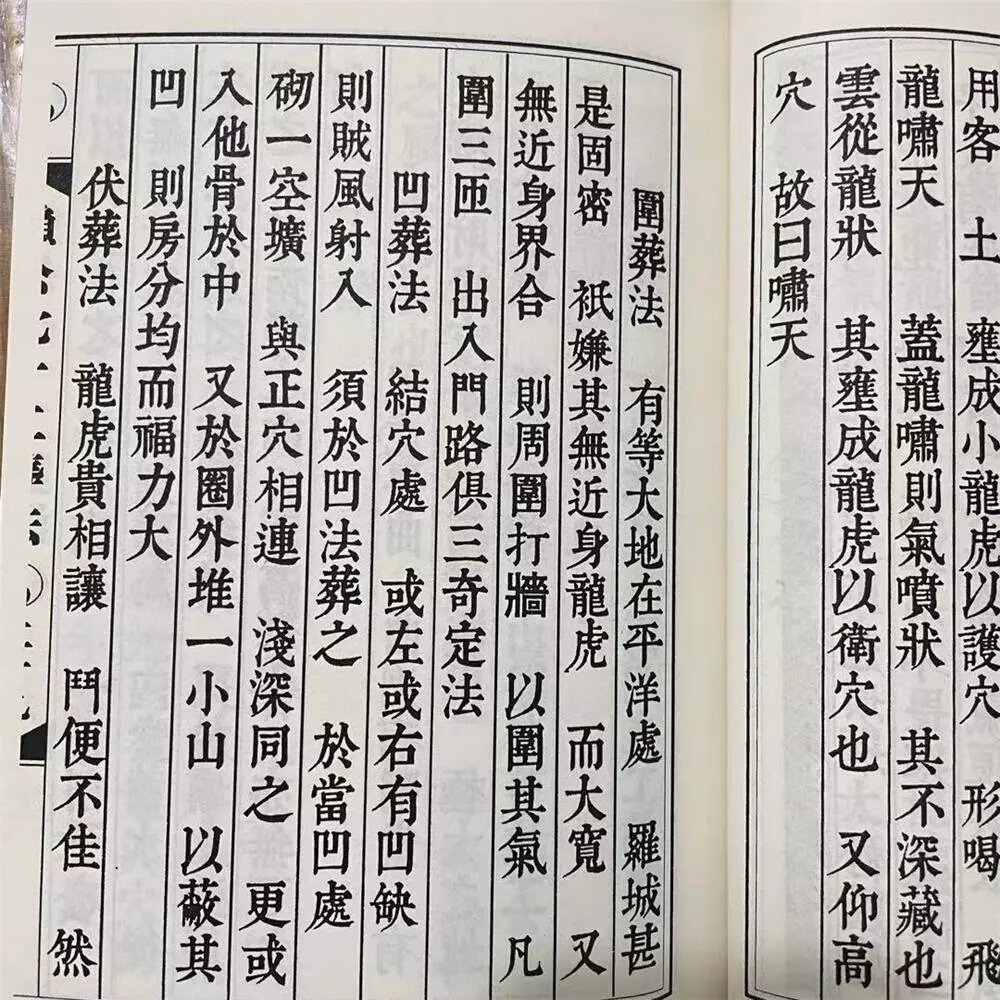 用客 土 壅成小龍虎以護穴 形喝 飛
龍嘯天 蓋龍嘯則氣噴狀 其不深藏也
雲從龍狀 其壅成龍虎以衛穴也 又仰高
穴 故曰嘯天
圍葬法 有等大地在平洋處 羅城甚
是固密 祇嫌其無近身龍虎 而大寬 又
無近身界合 則周圍打牆 以圍其氣 凡
圍三匝 出入門路俱三奇定法
凹葬法 結穴處 或左或右有凹缺
則賊風射入 須於凹法葬之 於當凹處
砌一空壙 與正穴相連 淺深同之 更或
入他骨於中 又於圈外堆一小山 以蔽其
凹 則房分均而福力大
伏葬法 龍虎貴相讓 鬥便不佳 然